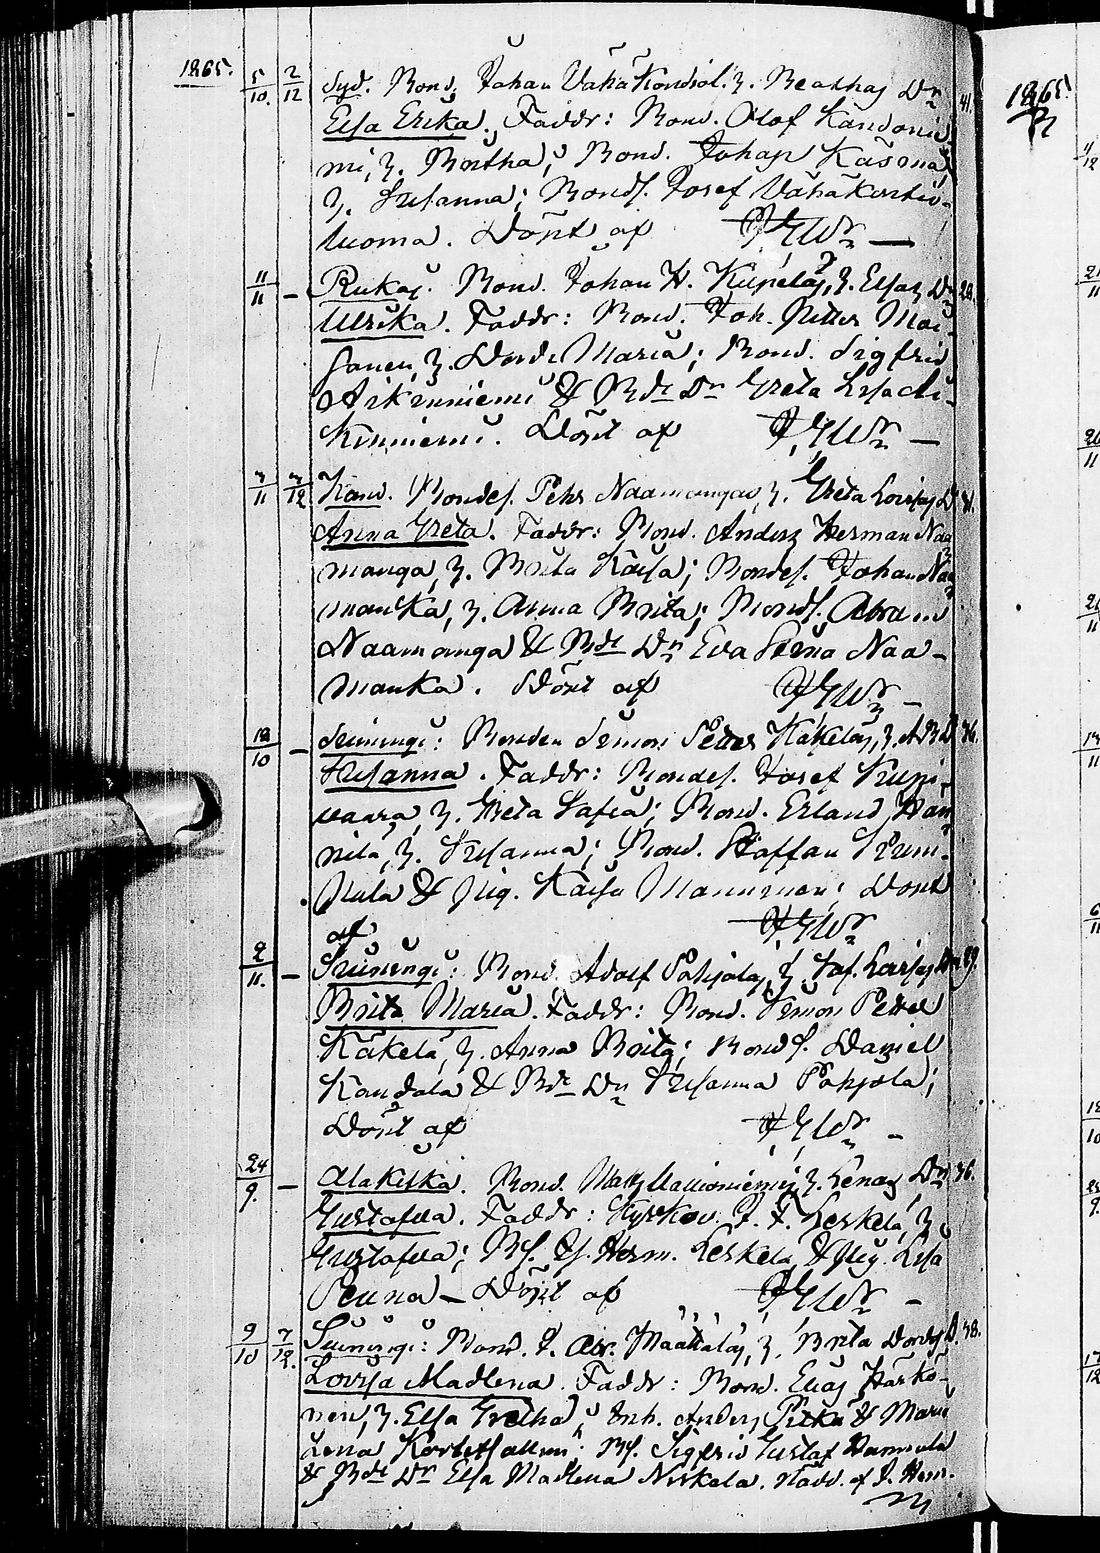 1865.
5/10. 2/12 Syd. Bond. Johan Vähä Kondiol. h. Beathas Dr 41.
Elsa Erika. Faddr: Bond. Olof Kandonie
mi, h. Bretha; Bond. Johan Käsmä,
h. Susanna; Bonds. Josef Vähäkontio-
luoma. Döpt af JGWr —
11/11 — Pukar. Bond. Johan H. Kupeläs, h. Elsas Dr 20.
Ulrika. Faddr: Bond. Joh. Petter Moi-
sanen, h. Dorde Maria; Bond. Sigfrid
Arkinniemi & Bde Dr Greta Lisa
kinniemi. Döpt af JGWr —
7/11 7/12 Kand. Bondes. Pehr Naamangas, h. Greta Lovisas D. 31.
Anna Greta. Faddr: Bond. Anders Herman Naa
manga, h. Brita Kaisa; Bondes. Johan Naa
manka, h. Anna Brita; Bonds. Abram
Naamanga & Bde Dr Eva Stina Naa-
manka. Döpt af JGWr —
18/10 — Suiningi: Bonden Simon Petter Käkeläs, h. A B D 36.
Susanna. Faddr: Bondes. Josef Kupi-
vaara, h. Greta Safia; Bond. Erland Han
nila, h. Susanna; Bond. Staffan
& Pig. Kaisa Manninen; Döpt
af JGWr
2/11. — Suiningi: Bond. Adolf Pohjolas, h. Saf. Lovisas Dr 39.
Brita Maria. Faddr: Bond. Simon Petter
Käkelä, h. Anna Brita; Bonds. Daniel
Kandala & Bde Dr Susanna Pohjola;
Döpt af JGWr —
24/9. — Alakitka. Bond. Matts h. Lenas Dr 36.
Gustafva. Faddr: Kyrkov. J. F. Leskelä, h
Gustafva; Bs. Herm. Leskelä & Pig. Lisa
Peuna — Döpt af JGWr —
9/10 7/12. Suiningi: Bond. J. Abr. Määttäläs, h. Brita Dordes D. 38.
Lovisa Madlena. Faddr: Bond. Elias Härkö-
nen, h. Elsa Gretha; Inh. Anders Pitkä & Maria
Lena Kortetjallen; Bs. Sigfrid Gustaf Hannula
& Bde Dr Elsa Madlena Niskala. Nödd. af J. Herm.
1865